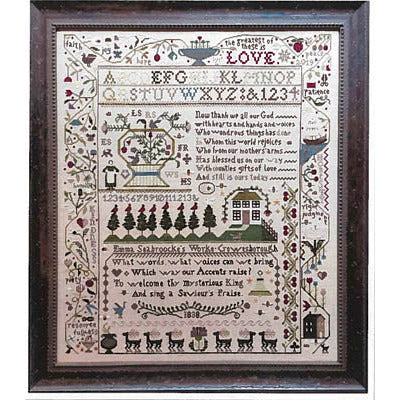 faith
the greatest of
these is
LOVE
peace
A EFG KL NOP
QRSTUVWXYZ&1234
patience
ES RS
ES FR
WS MS
Now thank we all our God
with hearts and hands and voices
Who wondrous things has done
in Whom this world rejoices
Who from our mother's arms
Has blessed us on our way
With countless gifts of love
And still is ours today
12345678910111213&14
kindness
right
judgment
Emma Seabroocke's Worke Crowesborough
What words, what voices can we bring
Which way our Accents raise?
To welcome thy mysterious King
And sing a Saviour's Praise
piety
1838
resource
fulness